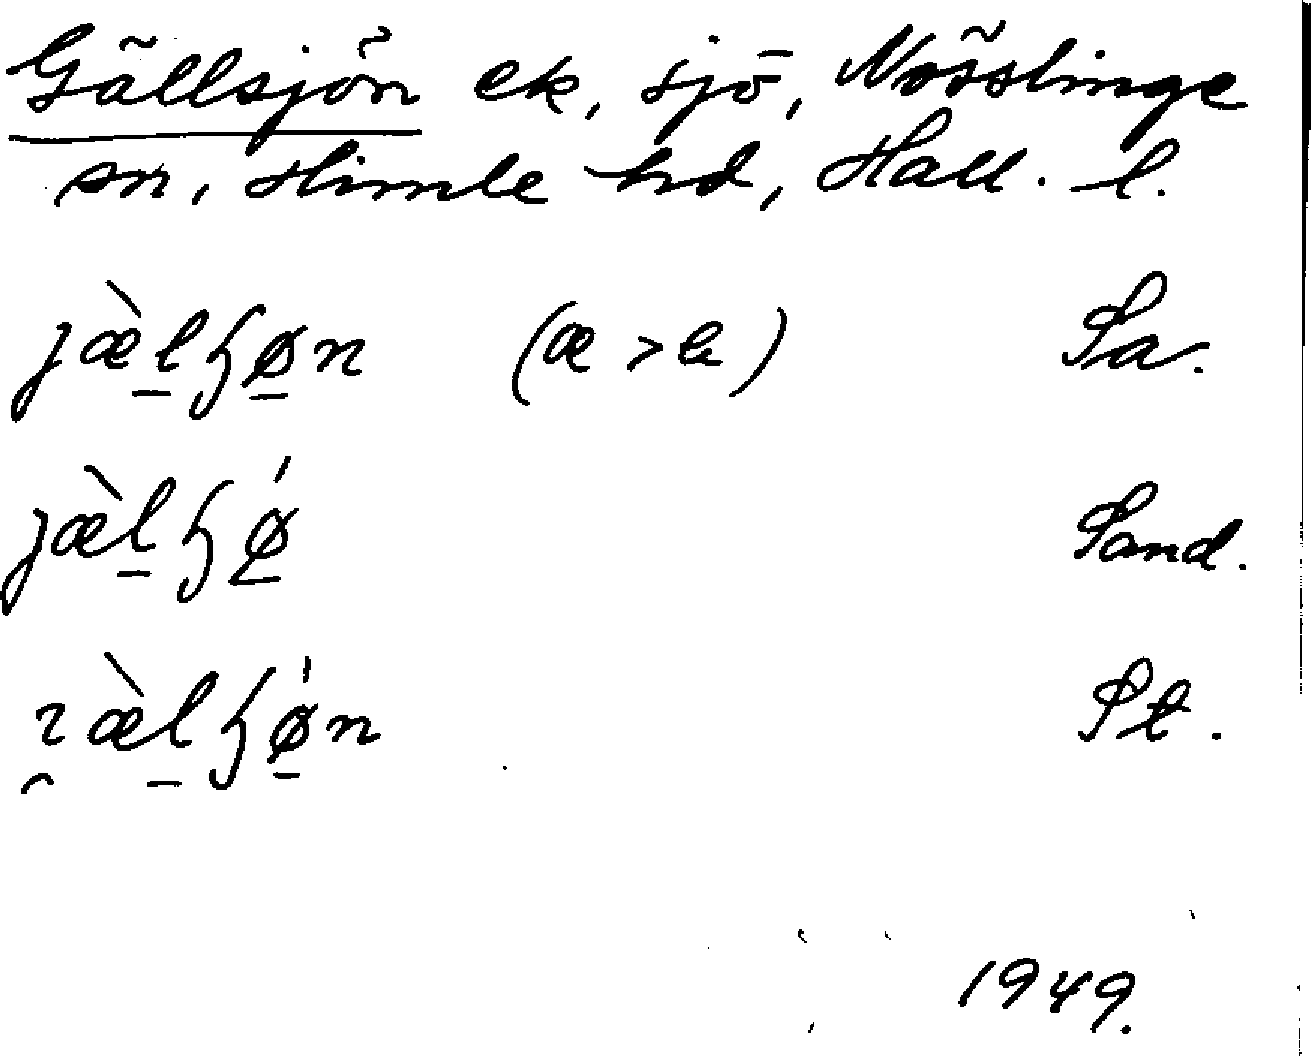 Gällsjön ek, sjö, Nösslinge
sn, Himle hd, Hall. l.
jæ̀l̠ɧø̠n (æ > e) Sa.
jæ̀l̠ɧǿ̠ Sand.
ɪ̯æ̀l̠ɧǿ̠n St.
1949.